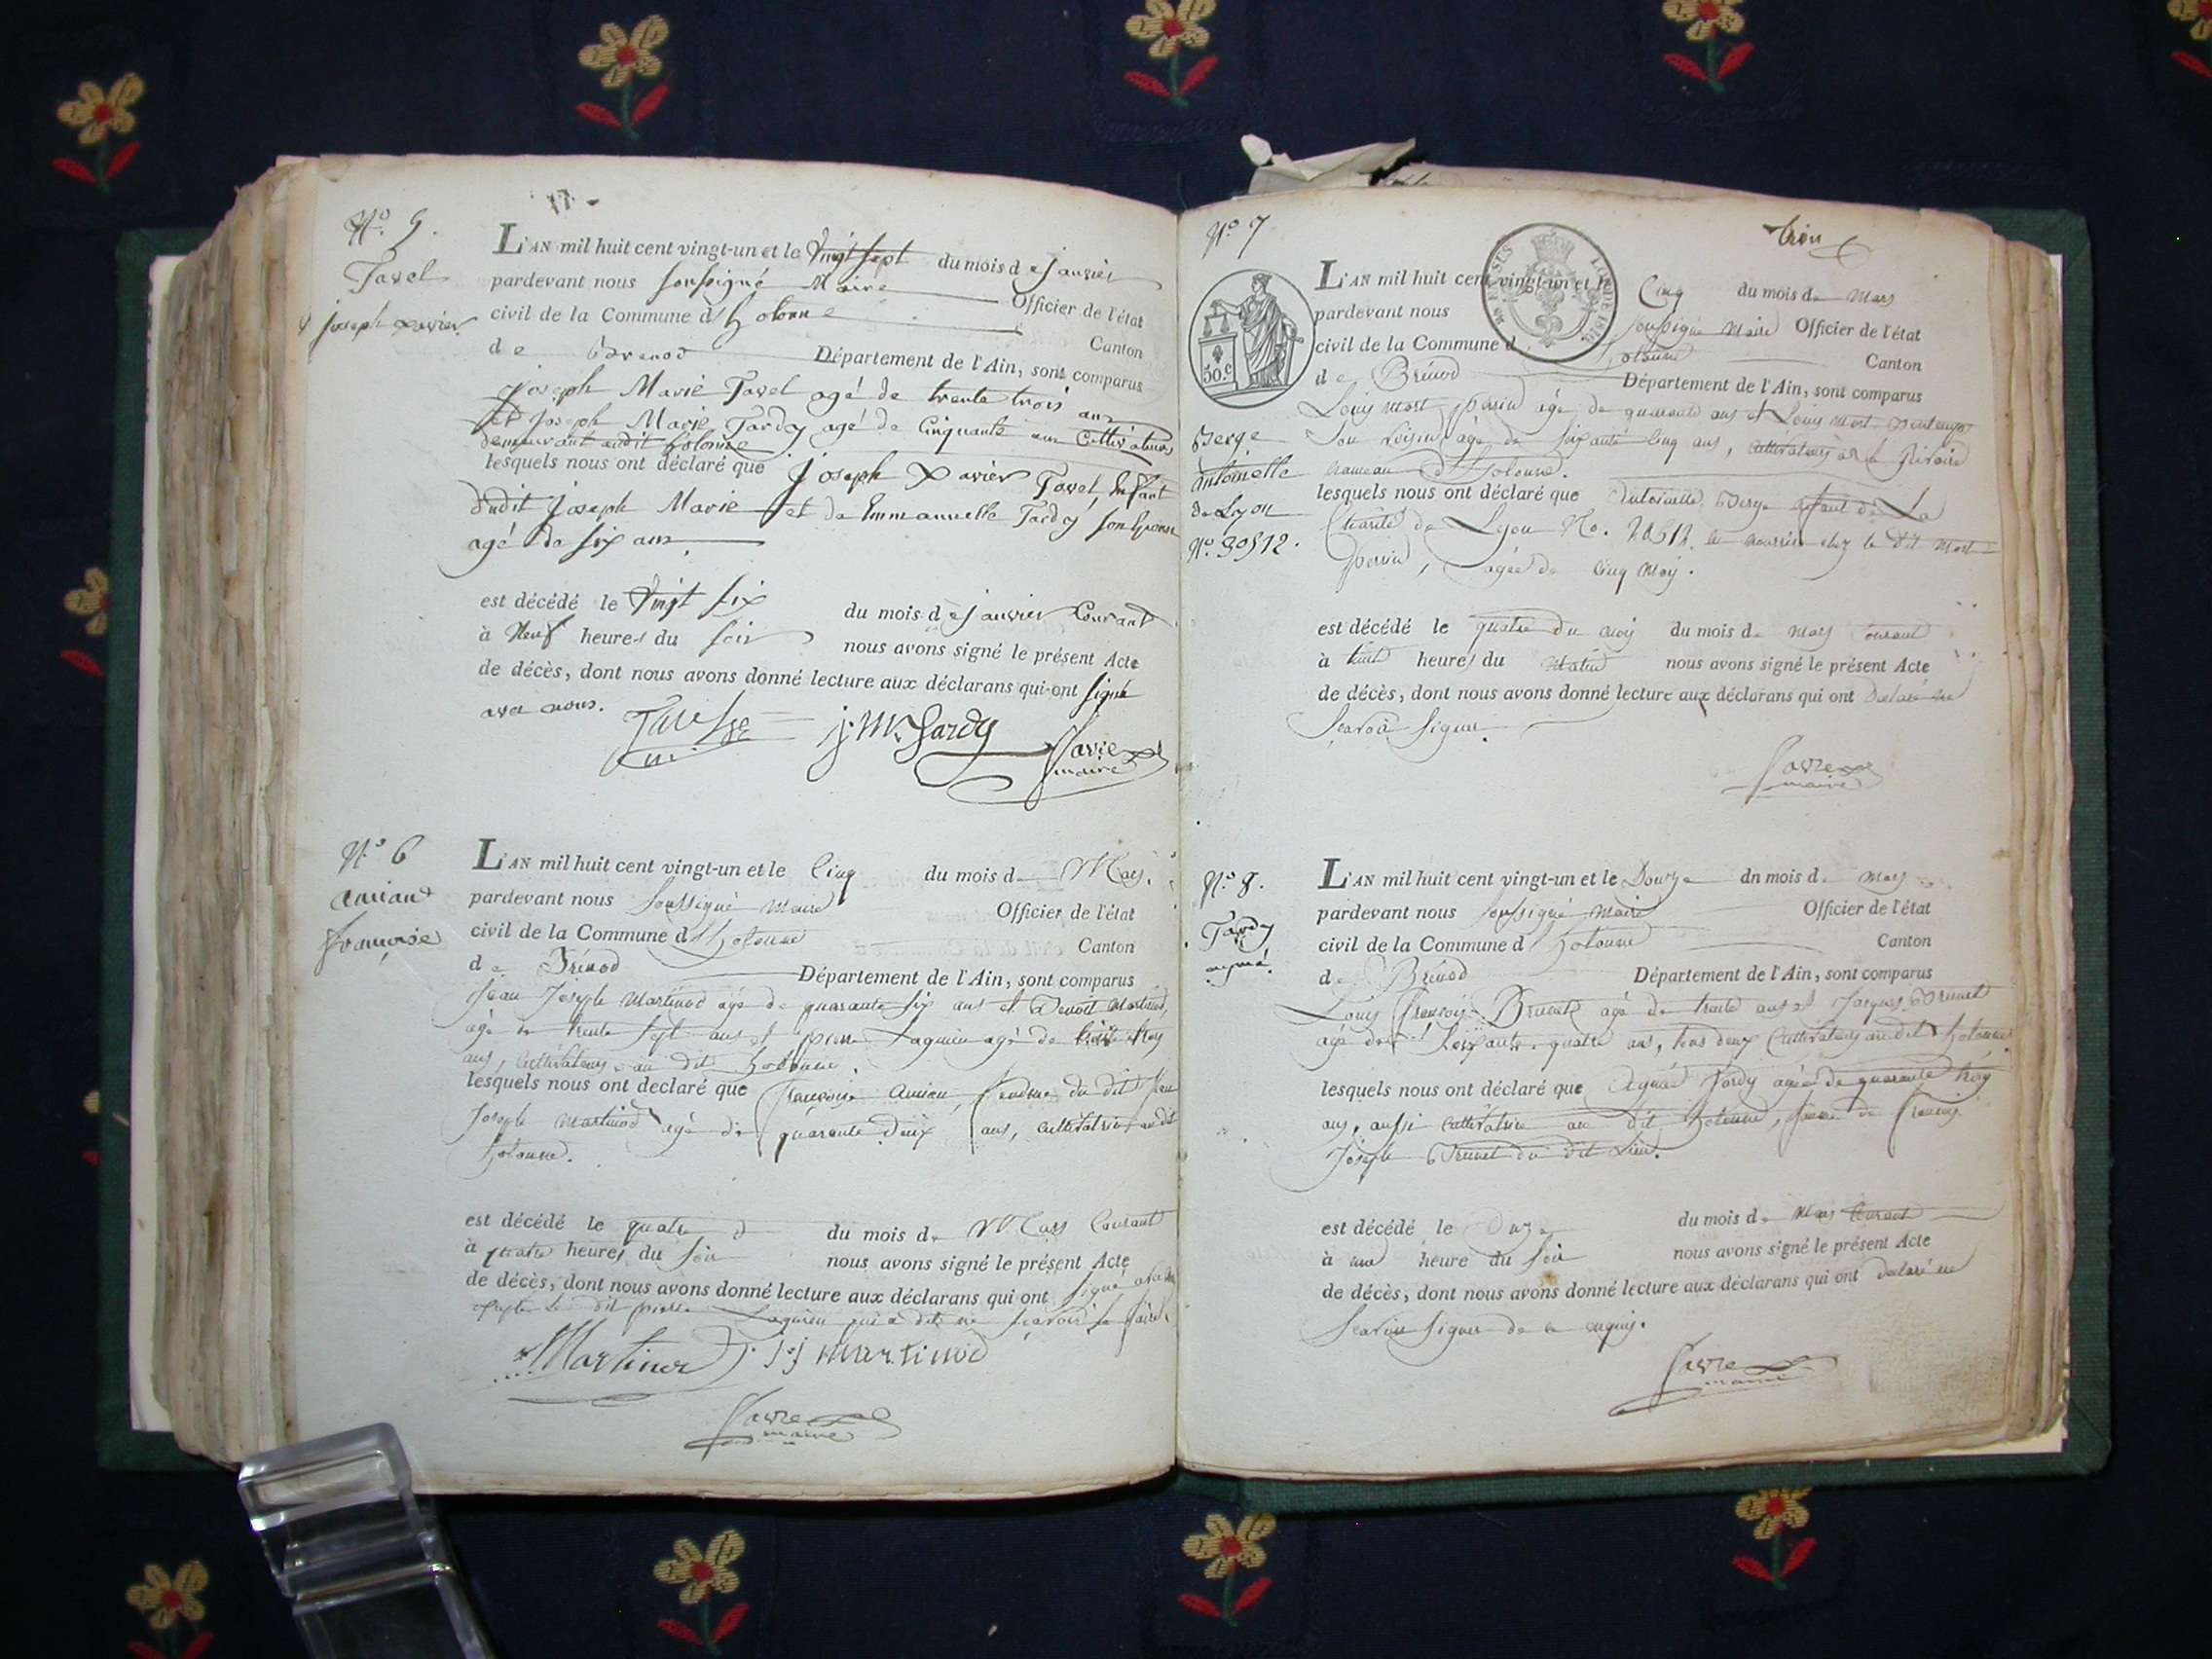 N.º 5.
Tavel
joseph xavier
L'AN mil huit cent vingt-un et le Vingt sept du mois de janvier
pardevant nous soussigné Maire Officier de l'état
civil de la Commune d'hotonne Canton
de Brenod Département de l'Ain, sont comparus
joseph Marie Tavel agé de trente trois ans
et joseph Marie Tardy agé de Cinquante ans Cultivateurs
demeurant audit hotonne
lesquels nous ont déclaré que joseph Xavier Tavel Enfant
dudit joseph Marie et de Emmanuelle Tardy son Epouse
agé de six ans
est décédé le Vingt six du mois de janvier Courant
à Neuf heures du soir nous avons signé le présent Acte
de décès, dont nous avons donné lecture aux déclarans qui ont signé
avec nous.
j. M. Tardy
Savre
maire
N.º 6
Amiand
françoise
L'AN mil huit cent vingt-un et le Cinq du mois de Mars.
pardevant nous soussigné Maire Officier de l'état
civil de la Commune d'hotonne Canton
de Brénod Département de l'Ain, sont comparus
Jean Joseph Martinod agé de quarante six ans et Benoit Martinod,
agé de trente sept ans et pierre Laguieu agé de
ans, Cultivateurs au dit hotonne.
lesquels nous ont declaré que françoise Amien, femme du dit Jean
Joseph Martinod agé de quarante deux ans, cultivatrice au dit
hotonne.
est décédé le quatre du mois de Mars Courant
à quatre heures du soir nous avons signé le présent Acte
de décès, dont nous avons donné lecture aux déclarans qui ont signé avec nous
excepté le dit pierre Laguieu qui a dit ne scavoir le faire.
Martinod J. J. Martinod
Savre
maire
N.º 7
trois
L'AN mil huit cent vingt-un et le Cinq du mois de Mars
pardevant nous soussigné Maire Officier de l'état
civil de la Commune d'hotonne Canton
de Brénod Département de l'Ain, sont comparus
50.c
Louis Mort perrin agé de quarante ans et Louis Mort
son voisin agé de soixante cinq ans, cultivateurs à la Rivoire
hameau d'hotonne.
Serge
antoinette
de Lyon
N.º 30512.
lesquels nous ont déclaré que Antoinette Serge enfant de La
Charité de Lyon No. en nourrice chez le dit Mort
perrin, agée de cinq mois.
est décédé le quatre du mois du mois de Mars Courant
à heures du Matin nous avons signé le présent Acte
de décès, dont nous avons donné lecture aux déclarans qui ont Declaré ne
scavoir signer.
Savre
maire
N.º 8.
Tardy
aymé.
L'AN mil huit cent vingt-un et le Douze dn mois de Mars
pardevant nous soussigné Maire Officier de l'état
civil de la Commune d'hotonne Canton
de Brénod Département de l'Ain, sont comparus
Louis françois Brunet agé de trente ans et Jacques Brunet
agé de soixante quatre ans, tous deux Cultivateurs audit hotonne
lesquels nous ont déclaré que Aymée Tardy agée de quarante trois
ans, aussi cultivatrice au dit hotonne, femme de françois
Joseph Brunet du dit Lieu.
est décédé le Onze du mois de Mars Courant
à une heure du soir nous avons signé le présent Acte
de décès, dont nous avons donné lecture aux déclarans qui ont declaré ne
scavoir signer de ce enquis.
Savre
maire